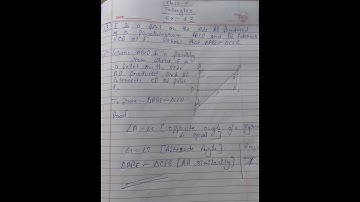 Class-X
Triangles
Ex:- 6.3
E is a point on the side AD produced
of a Parallelogram ABCD and BE intersects
CD at F. Show that ΔABE ~ ΔCFB
ABCD is a
where E is
a point on the side
AD produced and BE
Intersects CD at point
F.
To prove - ΔABE ~ ΔCFB
Proof
∠A = ∠C [opposite angle of a
is equal]
[Alternate Angle]
ΔABE ~ ΔCFB [AA similarity]